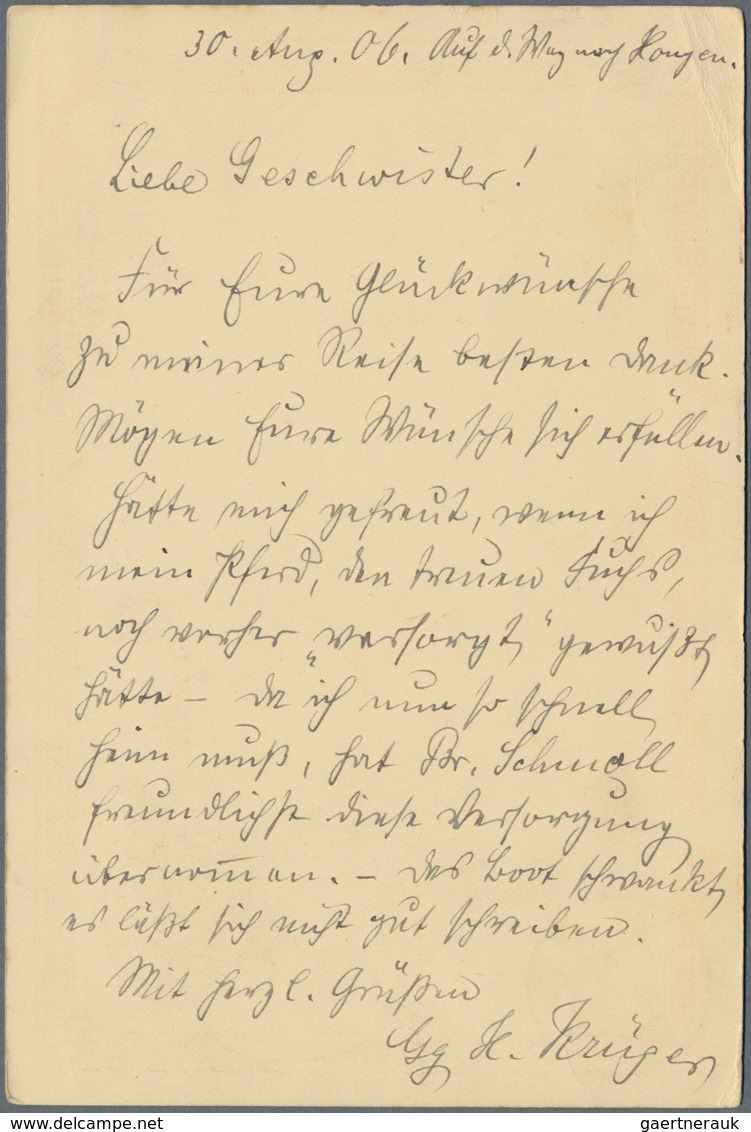 30. Aug. 06. Auf d. Weg nach
Liebe Geschwister!
Für Eure Glückwünsche
zu meiner Reise besten Dank.
Mögen Eure Wünsche sich erfüllen.
Hätte mich gefreut, wenn ich
mein Pferd, den treuen Fuchs,
noch vorher „versorgt“ gewußt
hätte – da ich nun so schnell
heim muß, hat Br. Schmoll
freundlichst diese Versorgung
übernom̅en. – Das Boot schwankt,
es läßt sich nicht gut schreiben.
Mit herzl. Grüßen
Gg H. Krüger
gaertnerauk